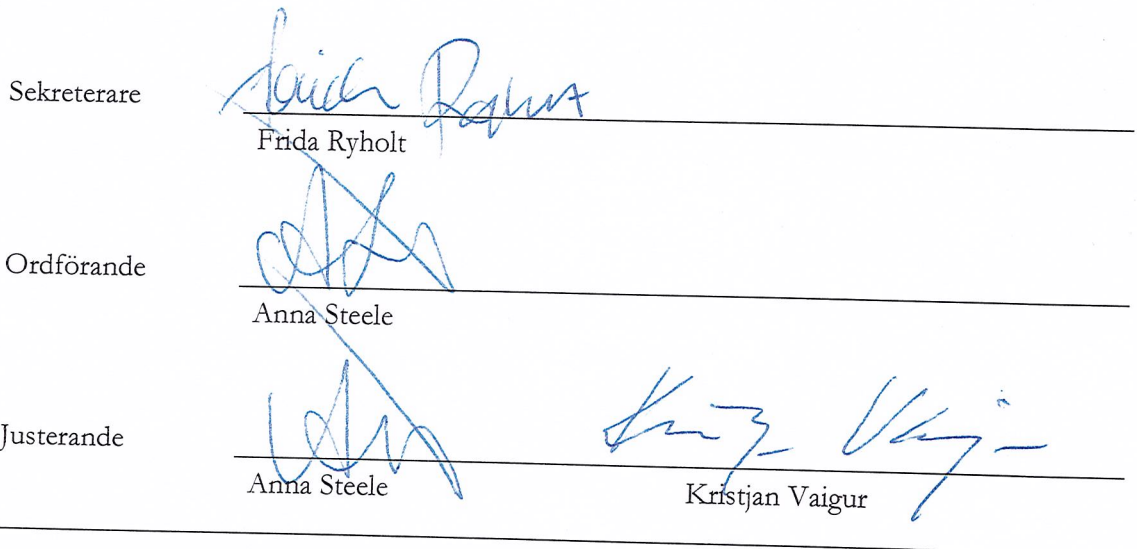 Sekreterare
Frida Ryholt
Ordförande
Anna Steele
Justerande
Anna Steele
Kristjan Vaigur